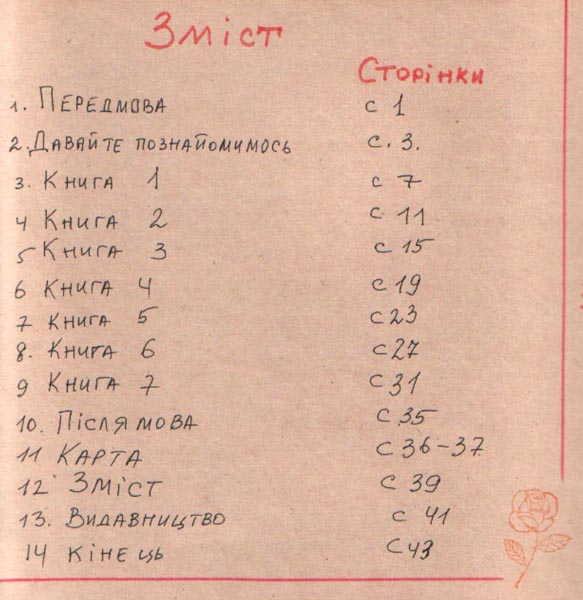 Зміст
Сторінки
1. Передмова с 1
2. Давайте познайомимось с. 3.
3. Книга 1 с 7
4 Книга 2 с 11
5 Книга 3 с 15
6 Книга 4 с 19
7 Книга 5 с 23
8. Книга 6 с 27
9 Книга 7 с 31
10. Післямова с 35
11 Карта с 36-37
12 Зміст с 39
13. Видавництво с 41
14 Кінець с 43